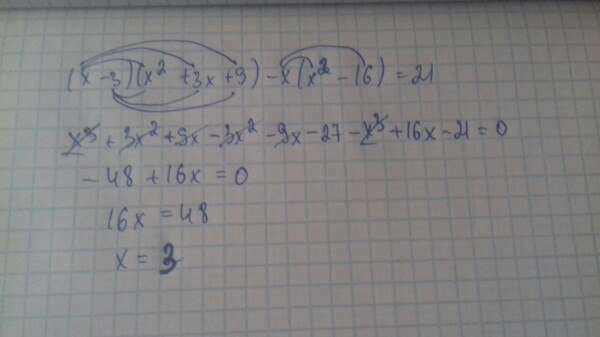 (x - 3)(x² + 3x + 9) - x(x² - 16) = 21
x³ + 3x² + 9x - 3x² - 9x - 27 - x³ + 16x - 21 = 0
- 48 + 16x = 0
16x = 48
x = 3